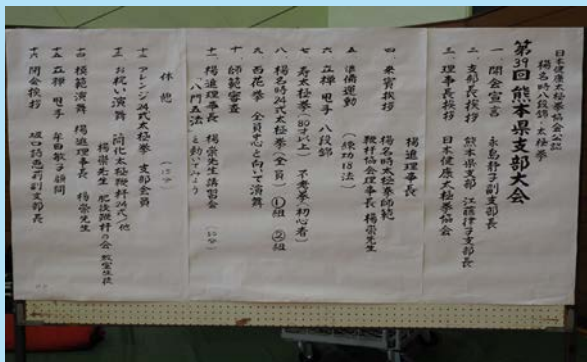 日本健康太極拳協会公認
楊名時八段錦・太極拳
第39回 熊本県支部大会
一 開会宣言 永島静子副支部長
二 支部長挨拶 熊本県支部 江藤律子支部長
三 理事長挨拶 日本健康太極拳協会
楊進理事長
四 来賓挨拶 楊名時太極拳師範
鞭杆協会理事長 楊崇先生
五 準備運動 (練功18法)
六 立禅 甩手 八段錦
七 寿太極拳(80才以上) 不老拳(初心者)
八 楊名時24式太極拳(全員) ①組 ②組
九 百花拳 全員中心を向いて演舞
十 師範審査
十一 楊進理事長 楊崇先生講習会 (50分)
「八門五法」を動いてみよう
休憩 (10分)
十二 アレンジ24式太極拳 支部会員
十三 お祝い演舞 簡化太極鞭杆24式/他
楊崇先生 肥後鞭杆の会 教室生徒
十四 模範演舞 楊進理事長 楊崇先生
十五 立禅 甩手 牟田敏子顧問
十六 閉会挨拶 坂口 前副支部長